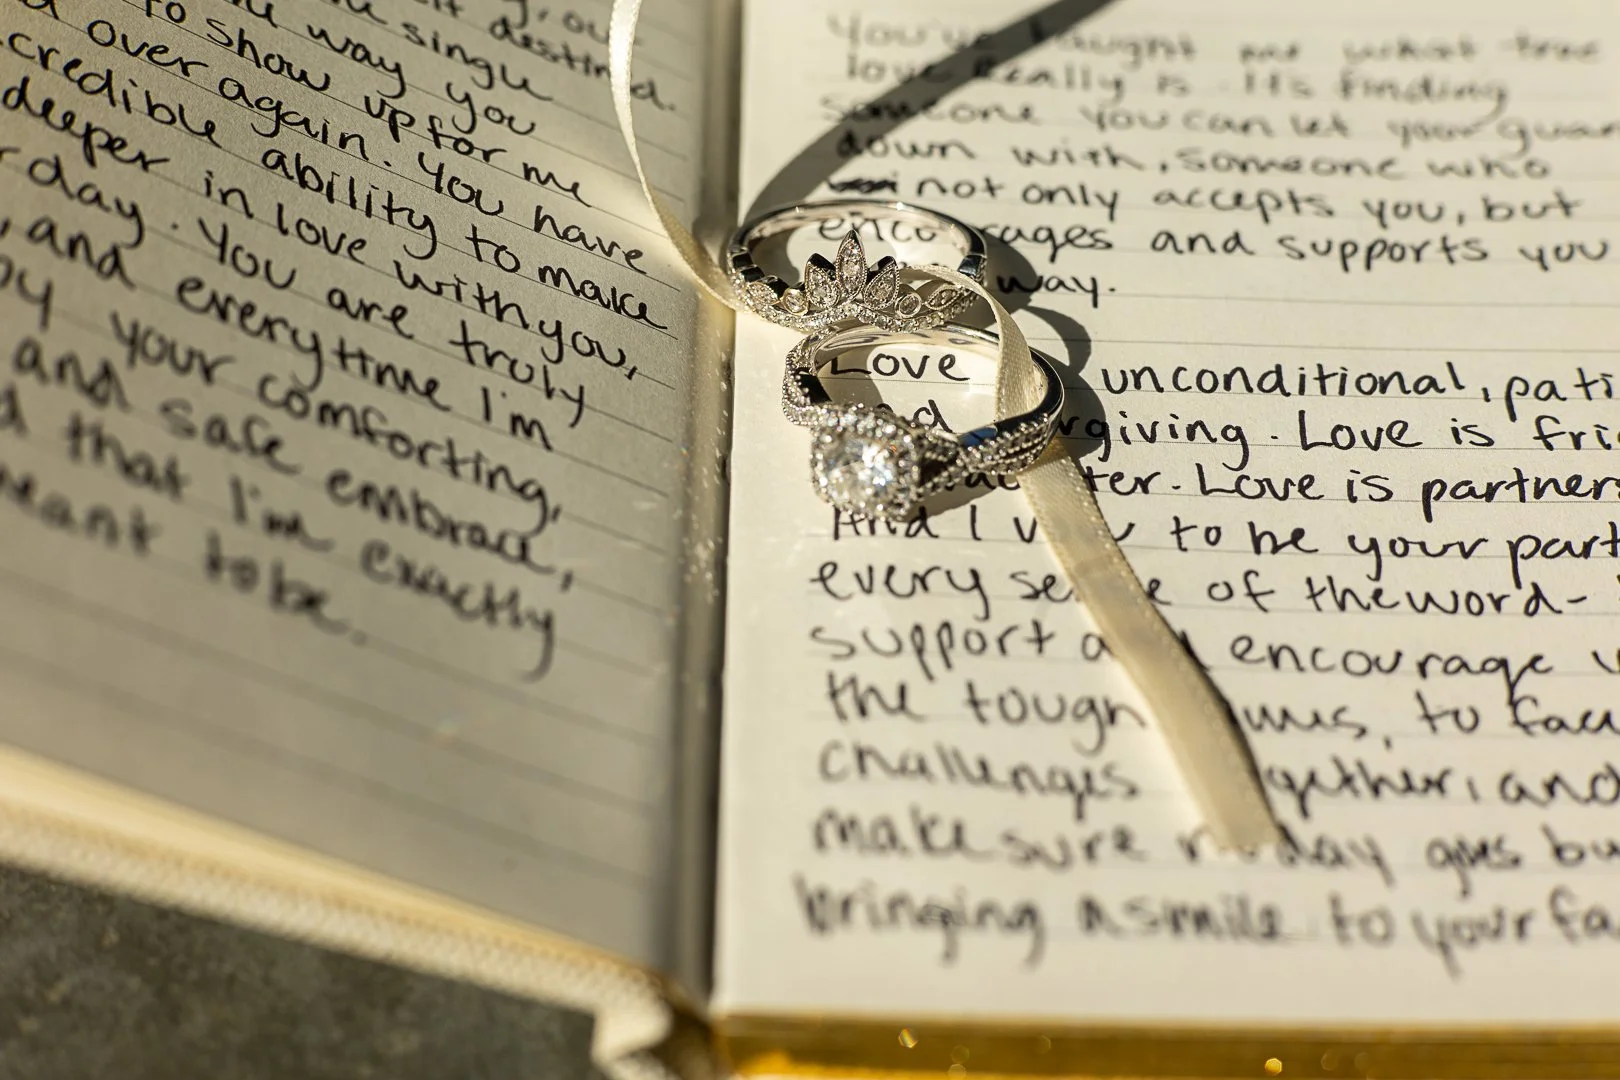 destined.
single
way you
to show up for me
over again. You have
credible ability to make
deeper in love with you,
day. You are truly
, and everything I'm
your comforting,
and safe embrace,
that I'm exactly
meant to be.
You've taught me what true
love really is. It's finding
someone you can let your guar
down with, someone who
not only accepts you, but
encourages and supports you
way.
Love unconditional, pati
giving. Love is
ter. Love is partners
And I v to be your part
every se e of the word-
support a encourage
the tough, to fac
challenges gether, and
make sure day goes
bringing a smile to your fa